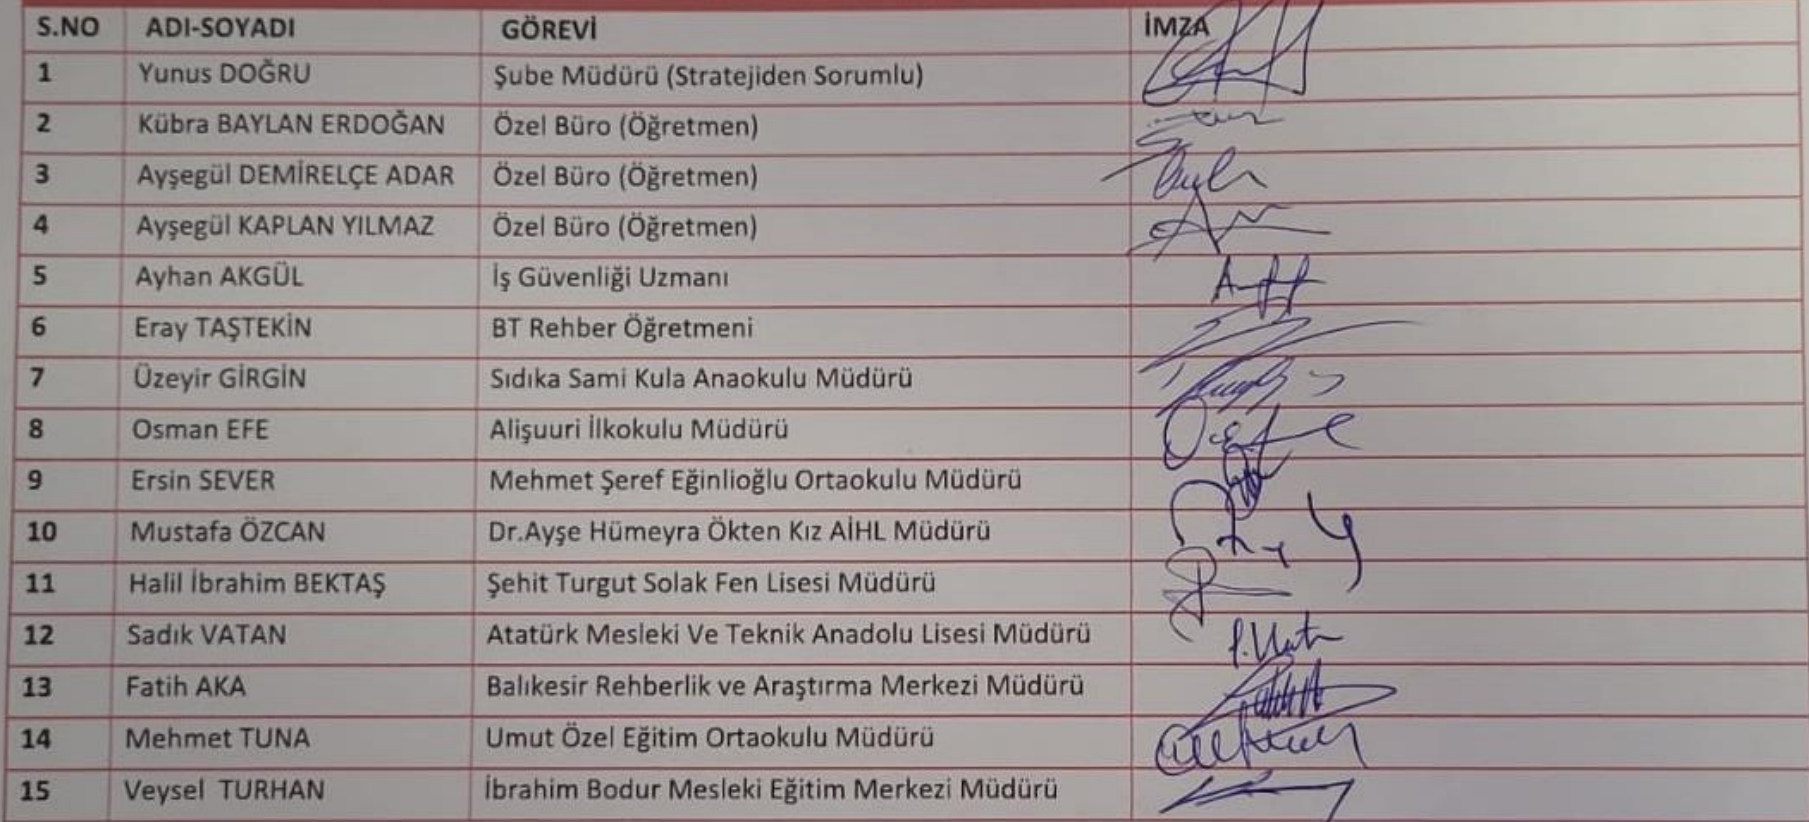 S.NO ADI-SOYADI GÖREVİ İMZA
1 Yunus DOĞRU Şube Müdürü (Stratejiden Sorumlu)
2 Kübra BAYLAN ERDOĞAN Özel Büro (Öğretmen)
3 Ayşegül DEMİRELÇE ADAR Özel Büro (Öğretmen)
4 Ayşegül KAPLAN YILMAZ Özel Büro (Öğretmen)
5 Ayhan AKGÜL İş Güvenliği Uzmanı
6 Eray TAŞTEKİN BT Rehber Öğretmeni
7 Üzeyir GİRGİN Sıdıka Sami Kula Anaokulu Müdürü
8 Osman EFE Alişuuri İlkokulu Müdürü
9 Ersin SEVER Mehmet Şeref Eğinlioğlu Ortaokulu Müdürü
10 Mustafa ÖZCAN Dr.Ayşe Hümeyra Ökten Kız AİHL Müdürü
11 Halil İbrahim BEKTAŞ Şehit Turgut Solak Fen Lisesi Müdürü
12 Sadık VATAN Atatürk Mesleki Ve Teknik Anadolu Lisesi Müdürü
13 Fatih AKA Balıkesir Rehberlik ve Araştırma Merkezi Müdürü
14 Mehmet TUNA Umut Özel Eğitim Ortaokulu Müdürü
15 Veysel TURHAN İbrahim Bodur Mesleki Eğitim Merkezi Müdürü